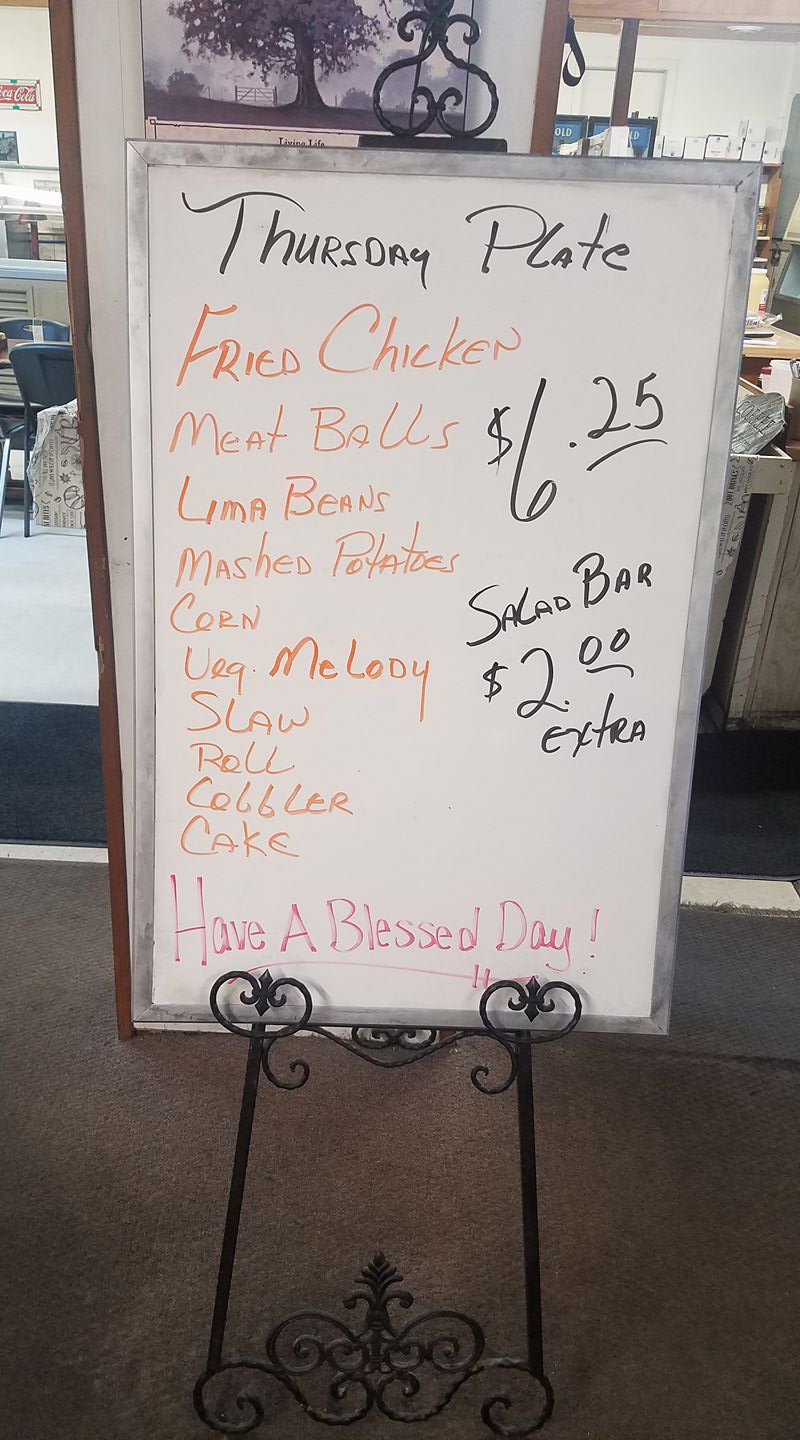 Coca-Cola
Living Life
OLD
Thursday Plate
Fried Chicken
Meat Balls
$6.25
Lima Beans
Mashed Potatoes
Corn
Salad Bar
Veg. Melody
$2.00
Slaw
extra
Roll
Cobbler
Cake
Have A Blessed Day!